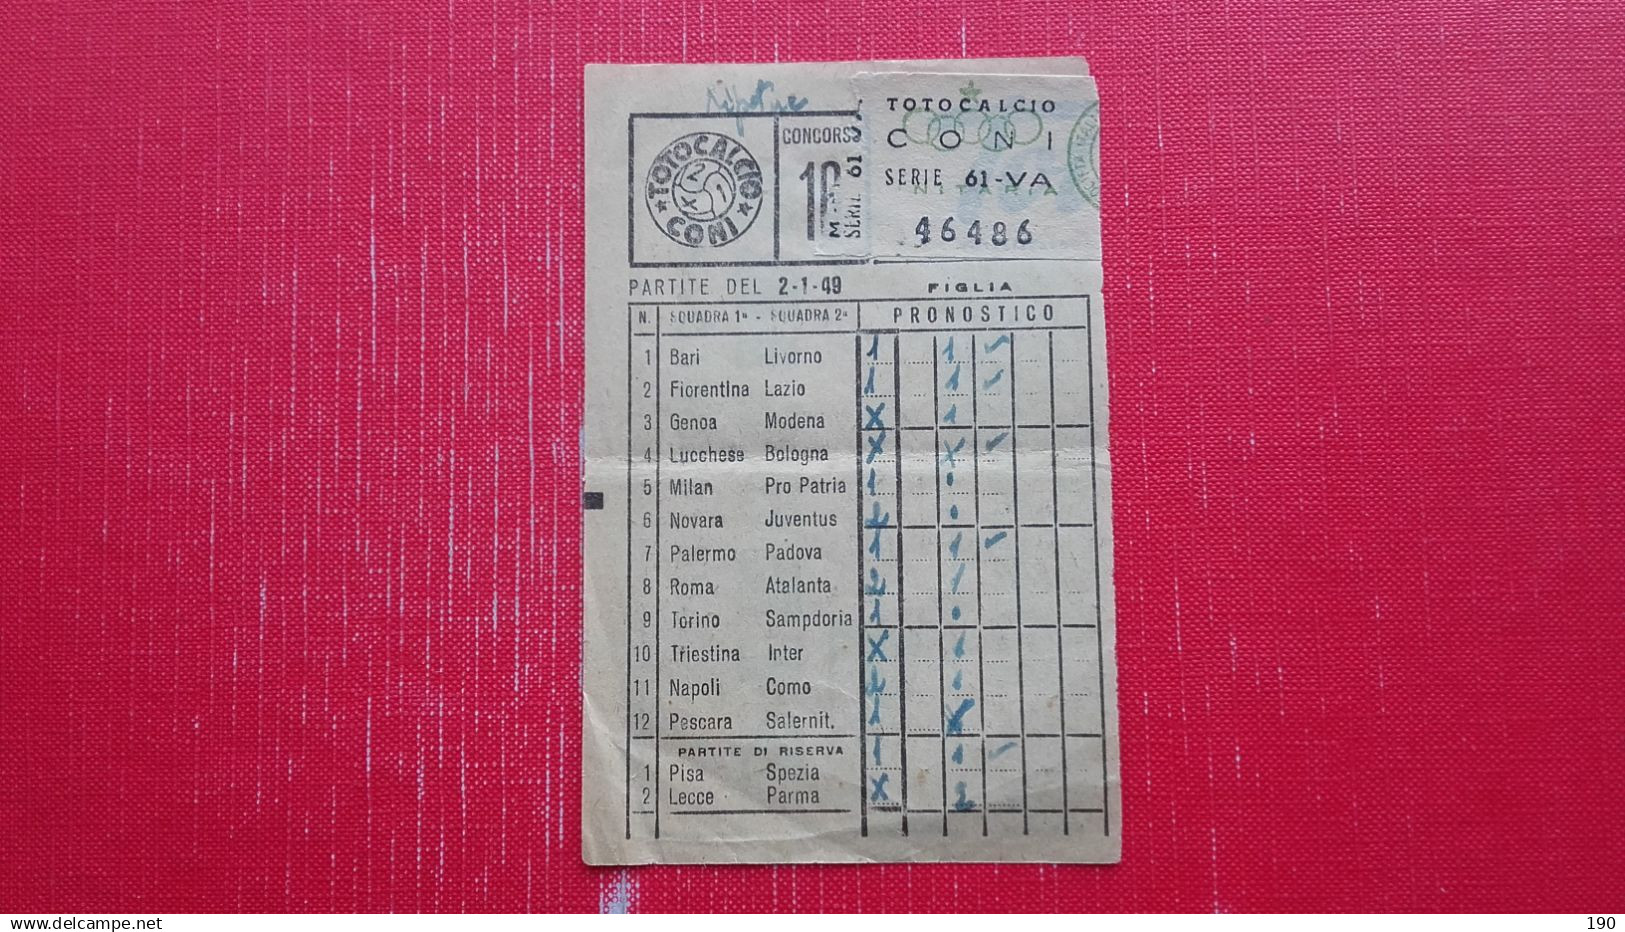 TOTOCALCIO
CONI
1 X 2
CONCORSO
TOTOCALCIO
CONI
SERIE 61-VA
46486
SERIE 61
PARTITE DEL 2-1-49 FIGLIA
N. SQUADRA 1ª - SQUADRA 2ª PRONOSTICO
1 Bari Livorno 1 1 ✓
2 Fiorentina Lazio 1 1 ✓
3 Genoa Modena X 1
4 Lucchese Bologna X X ✓
5 Milan Pro Patria 1 •
6 Novara Juventus 2 •
7 Palermo Padova 1 1 ✓
8 Roma Atalanta 2 1
9 Torino Sampdoria 1 •
10 Triestina Inter X 1
11 Napoli Como 2
12 Pescara Salernit. 1 X
PARTITE DI RISERVA
1 Pisa Spezia 1 1 ✓
2 Lecce Parma X 2
delcampe.net
190